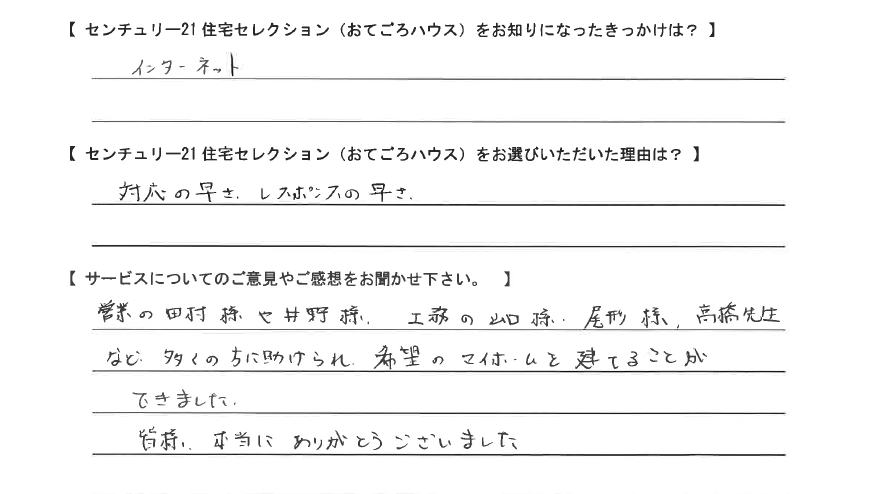 【 センチュリー21 住宅セレクション（おてごろハウス）をお知りになったきっかけは？ 】
インターネット
【 センチュリー21 住宅セレクション（おてごろハウス）をお選びいただいた理由は？ 】
対応の早さ、レスポンスの早さ、
【 サービスについてのご意見やご感想をお聞かせ下さい。 】
営業の田村様や井野様、工務の山口様、尾形様、高橋先生
など、多くの方に助けられ、希望のマイホームを建てることが
できました。
皆様、本当にありがとうございました